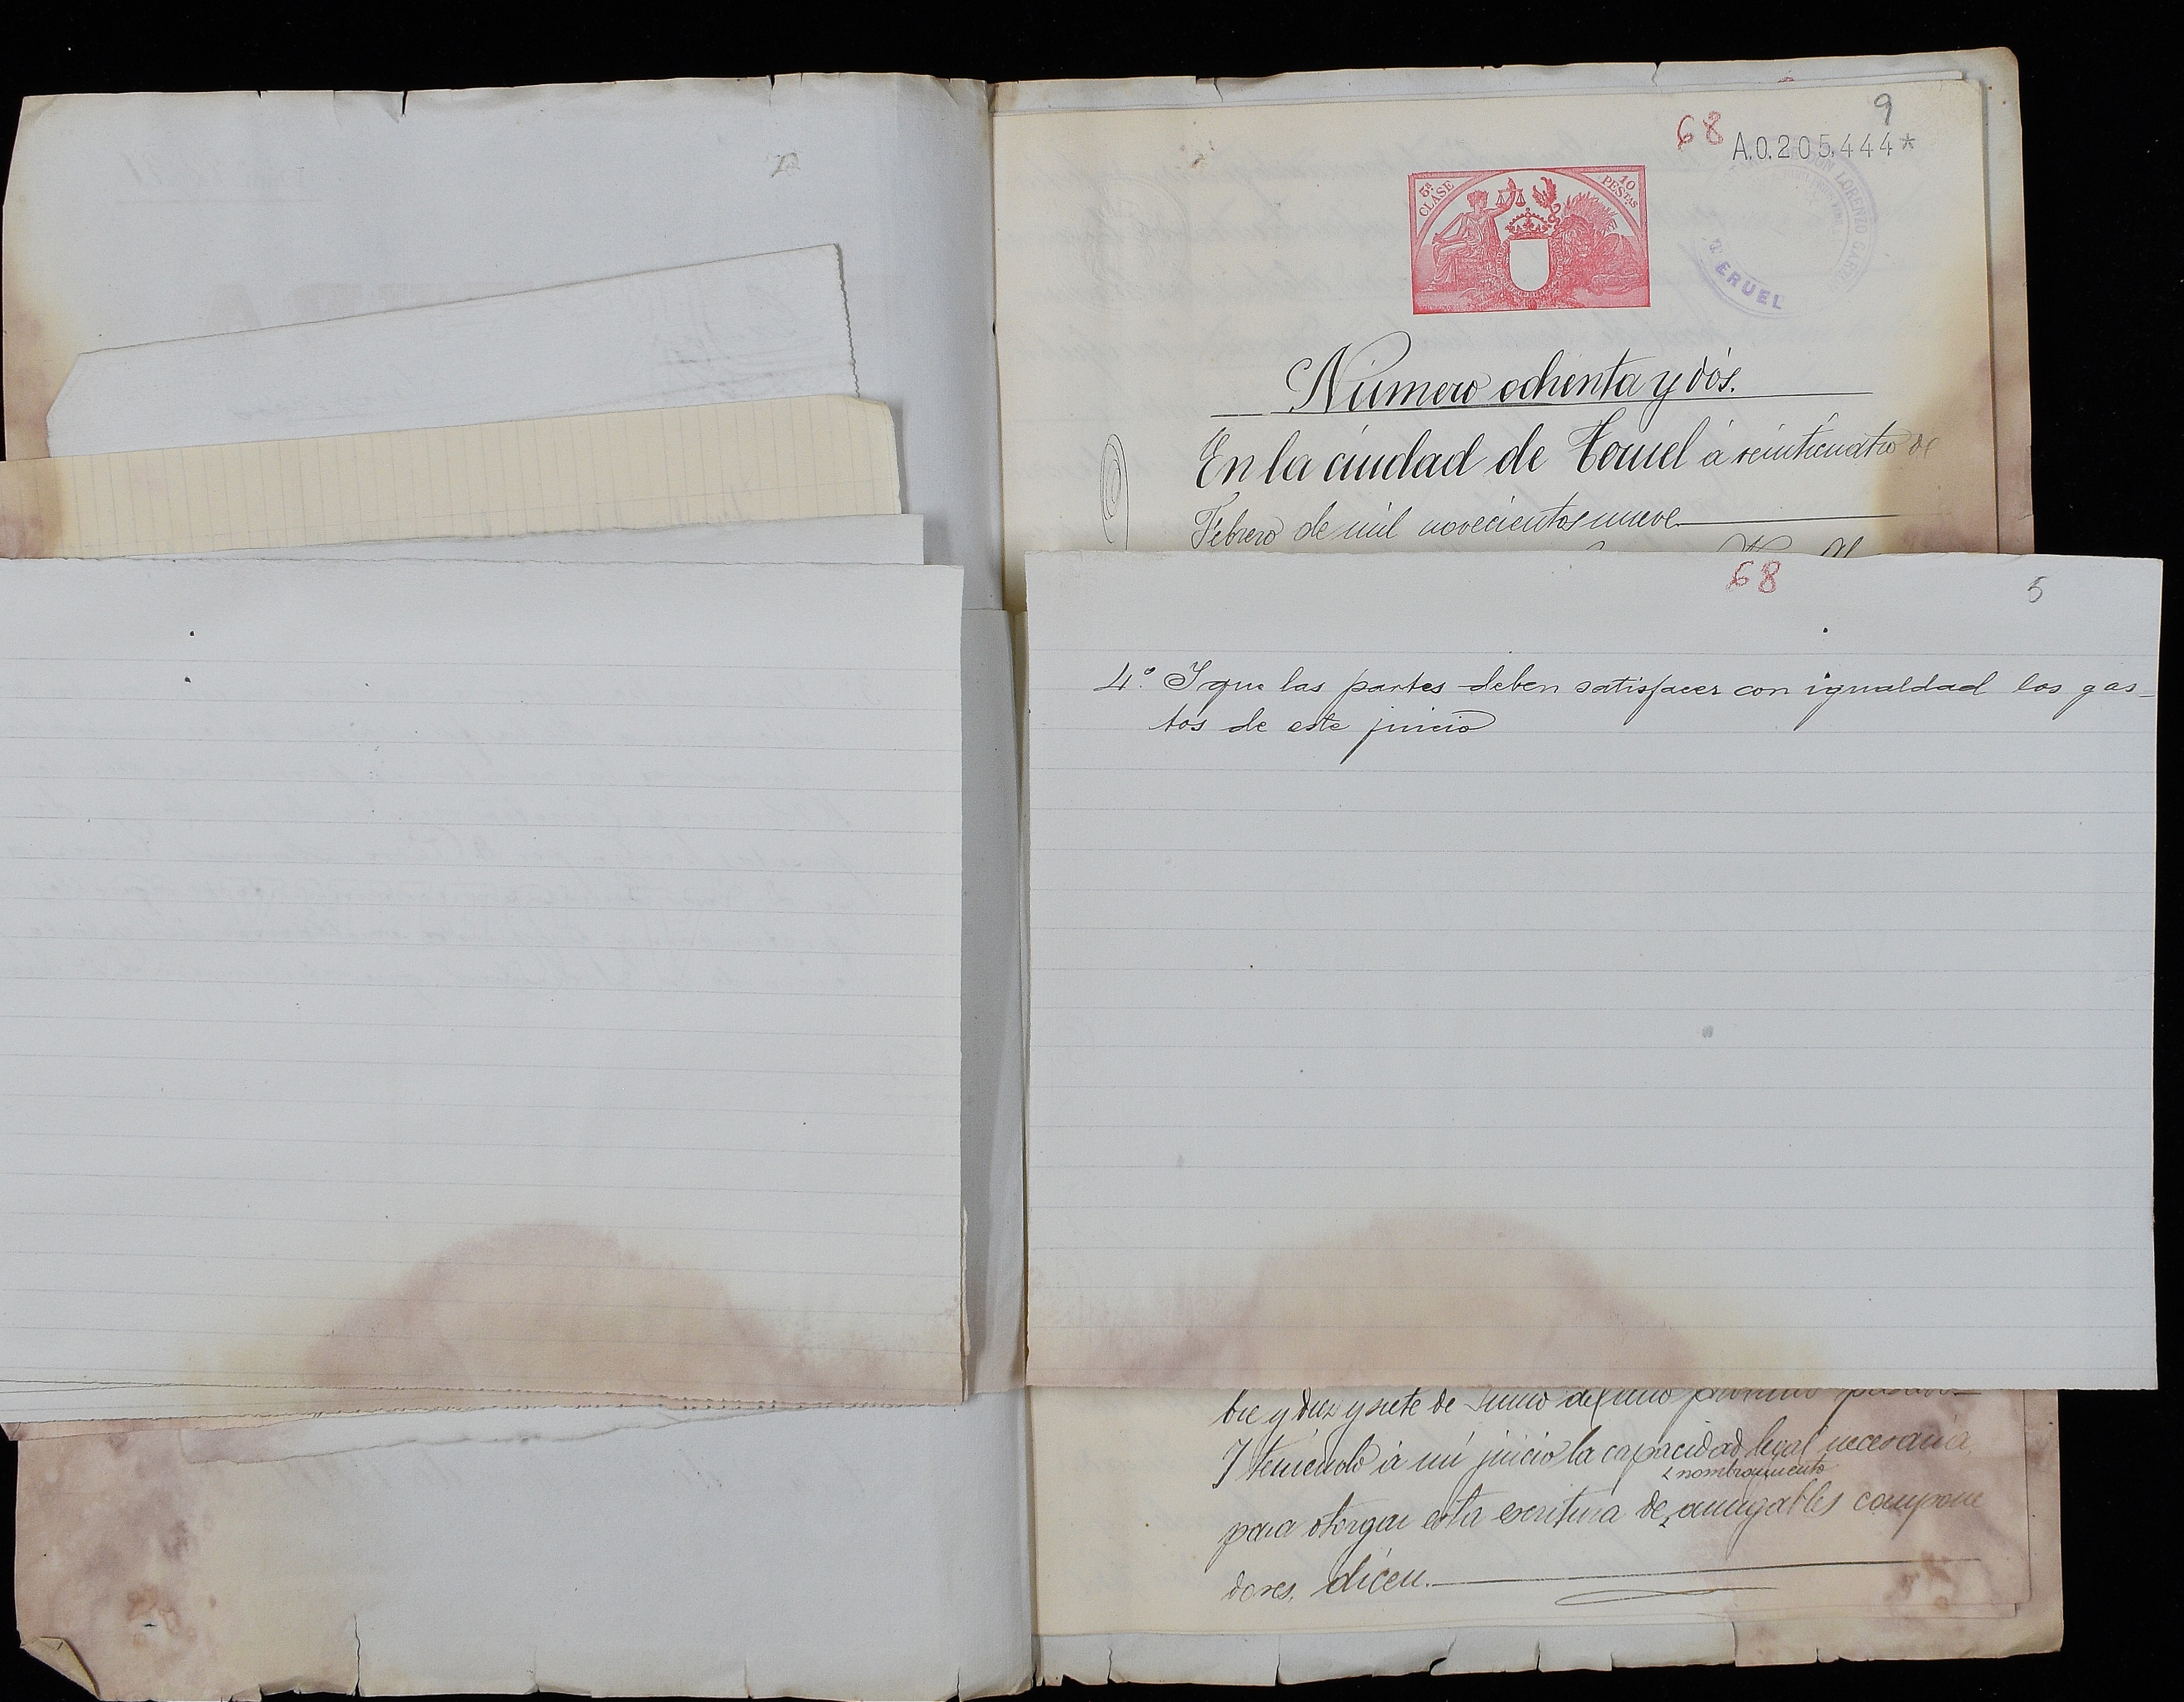 9
68
A.0.205.444*
5ª CLASE
10 PESTAS
DON LORENZO
TERUEL
Número ochenta y dós.
En la ciudad de Teruel á veinticuatro de
Febrero de mil novecientos nueve
68
5
4.º Y que las partes deben satisfacer con igualdad los gas-
tos de este juicio
bre y diez y siete de Junio del año próximo pasado
Y teniendo á mi juicio la capacidad legal necesaria
nombramiento
para otorgar esta escritura de amigables compone
dores, dicen.